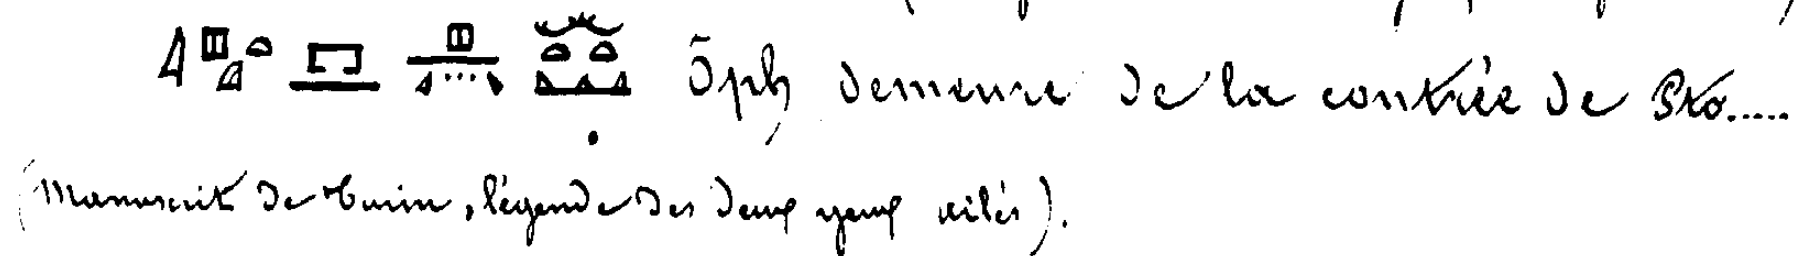 Ōph demeure de la contrée de Pto.....
(Manuscrit de Turin, légende des deux yeux ailés).